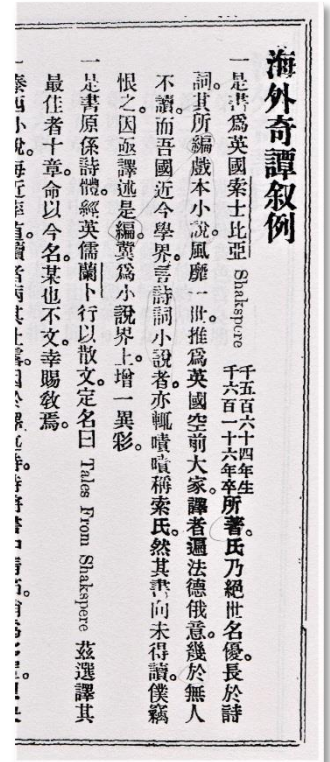 海外奇譚叙例
一是書爲英國索士比亞 Shakspere 千五百六十四年生 千六百一十六年卒 所著。氏乃絕世名優。長於詩
詞。其所編戲本小說。風靡一世。推爲英國空前大家。譯者遍法德俄意。幾於無人
不讀。而吾國近今學界。言詩詞小說者。亦輒嘖嘖稱索氏。然其書向未得讀。僕竊
恨之。因亟譯述是編。冀爲小說界上增一異彩。
一是書原係詩體。經英儒蘭卜行以散文。定名曰 Tales From Shakspere 茲選譯其
最佳者十章。命以今名。某也不文。幸賜敎焉。
一泰西小說。每近率直。讀者病其